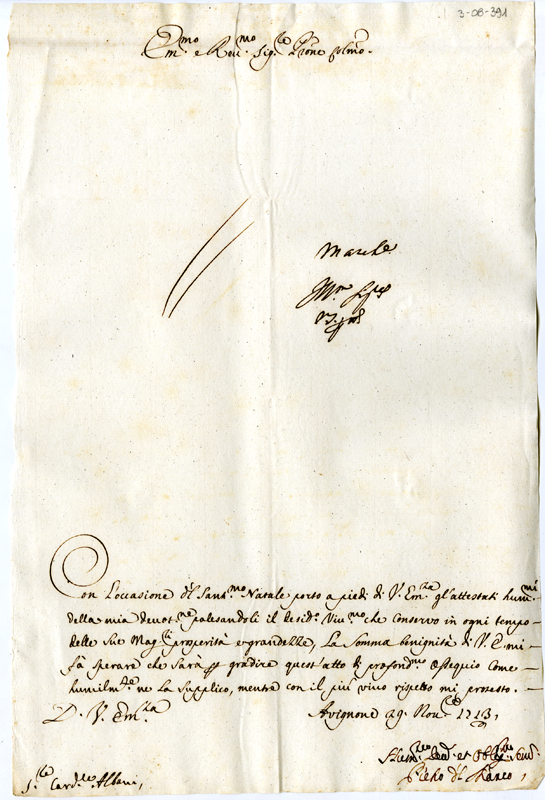 3-08-391
Em.mo e Rev.mo Sig.re P.rone Colmo.
Marche
Con l'occasione del Sant.mo Natale porto a piedi di V. Em.za gl'attestati hum.mi
della mia devot.ne palesandoli il desid.o Viv.mo che conservo in ogni tempo
delle Sue Mag.ri prosperità e grandezze, La Somma benignità di V. E. mi
fà sperare che Sarà p gradire quest'atto di profond.mo Ossequio come
humilm.te ne La Supplico, mentre con il più vivo rispetto mi protesto.
D. V. Em.za
Avignone 29. Nov.re 1713,
Hum.mo Dev.mo et Obl.mo Serv.
Pietro
S.r Card.le Albani,